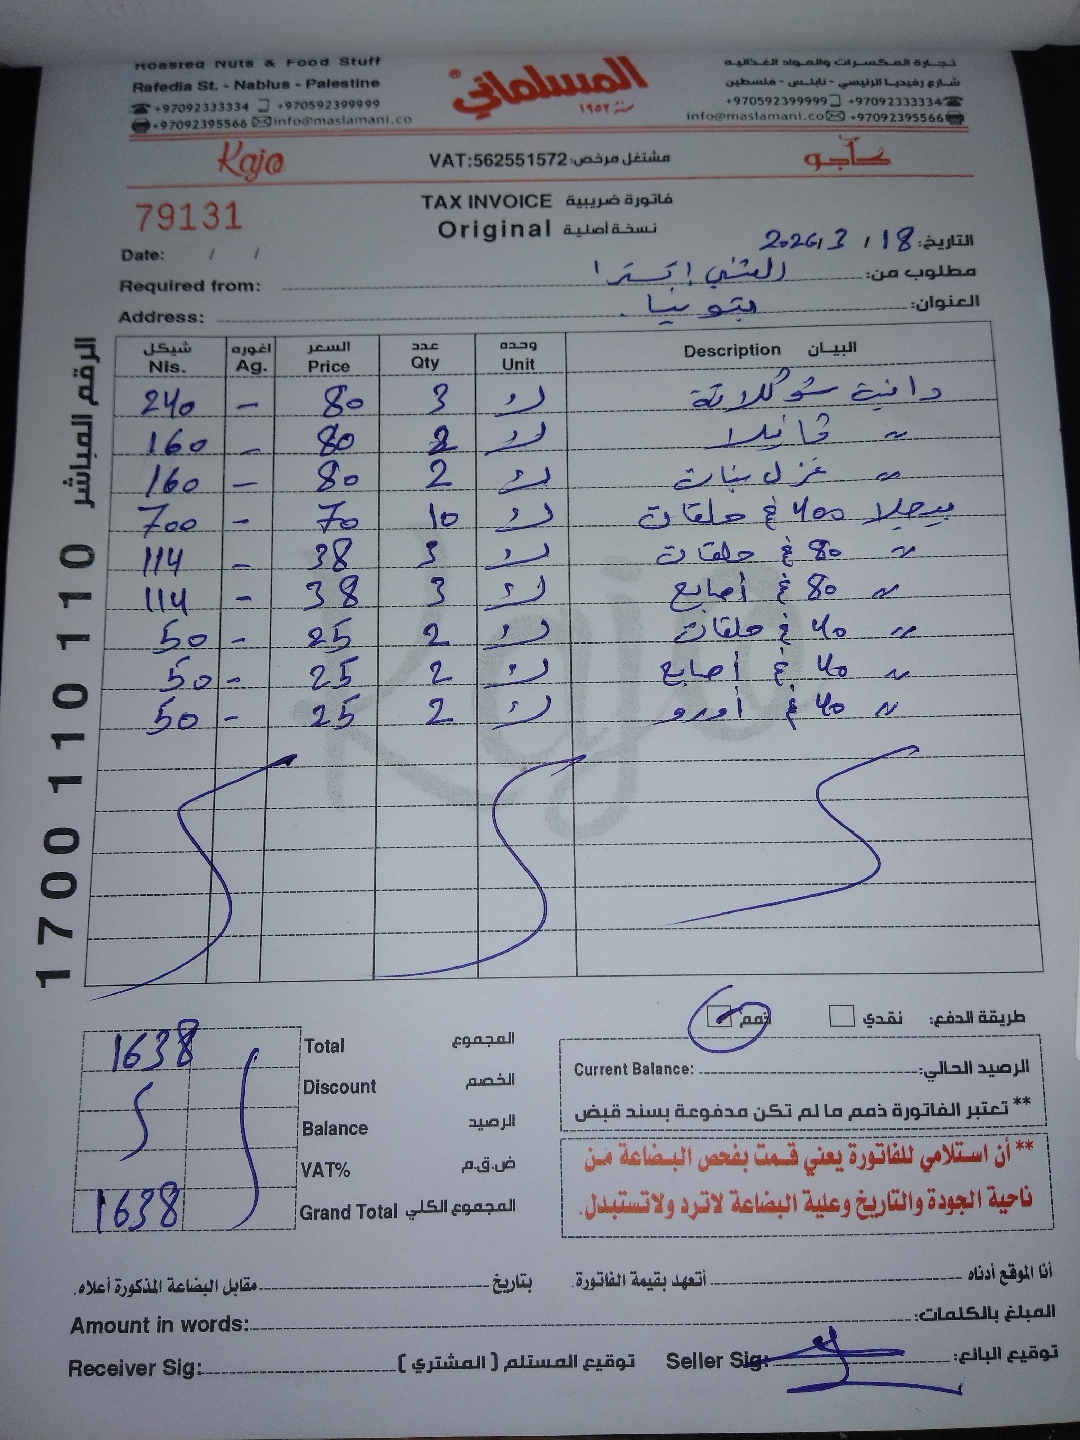 Roasted Nuts & Food Stuff
Rafedia St. - Nablus - Palestine
+97092333334 +970592399999
+97092395566 info@maslamani.co
المسلماني ®
سنة ١٩٥٢
تجارة المكسرات والمواد الغذائية
شارع رفيديا الرئيسي - نابلس - فلسطين
+970592399999 +97092333334
info@maslamani.co +97092395566
Kajo
VAT:562551572:مشتغل مرخص
كاجو
79131
TAX INVOICE فاتورة ضريبية
Original نسخة أصلية
Date: / /
التاريخ: 18 / 3 / 2026
Required from: مطلوب من:
Address: العنوان:
الرقم المباشر 1700 110 110
شيكل اغوره السعر عدد وحده البيان
Nis. Ag. Price Qty Unit Description
240 - 80 3 ك دانية شوكلاتة
160 - 80 2 ك " فانيلا
160 - 80 2 ك " غزل بنات
700 - 70 10 ك 400 غ حلقات
114 - 38 3 ك " 80 غ حلقات
114 - 38 3 ك " 80 غ أصابع
50 - 25 2 ك " 40 غ حلقات
50 - 25 2 ك " 40 غ أصابع
50 - 25 2 ك " 40 غ أورو
Kajo
طريقة الدفع: نقدي ذمم
1638 Total المجموع
Discount الخصم
Balance الرصيد
VAT% ض.ق.م
1638 Grand Total المجموع الكلي
Current Balance: الرصيد الحالي:
** تعتبر الفاتورة ذمم ما لم تكن مدفوعة بسند قبض
** أن استلامي للفاتورة يعني قمت بفحص البضاعة من
ناحية الجودة والتاريخ وعلية البضاعة لاترد ولاتستبدل.
أنا الموقع أدناه أتعهد بقيمة الفاتورة. بتاريخ مقابل البضاعة المذكورة أعلاه.
Amount in words: المبلغ بالكلمات:
Receiver Sig: توقيع المستلم (المشتري) Seller Sig: توقيع البائع: